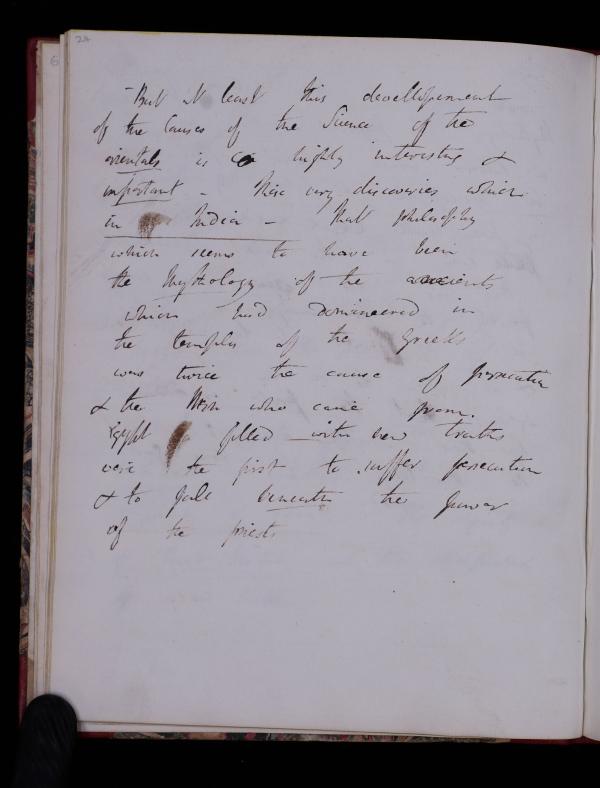 24
6
But at least this developement
of the Causes of the Science of the
orientals is highly interesting &
important - These very discoveries which
in India - That philosophy
which seems to have been
the Mythology of the ancients
which had domineered in
the temples of the Greeks
was twice the cause of persecution
& the Men who came from
Egypt filled with new truths
were the first to suffer persecution
& to fall beneath the power
of the priests